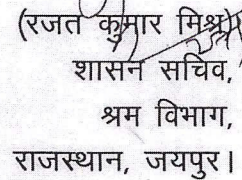 (रजत कुमार मिश्र)
शासन सचिव,
श्रम विभाग,
राजस्थान, जयपुर।